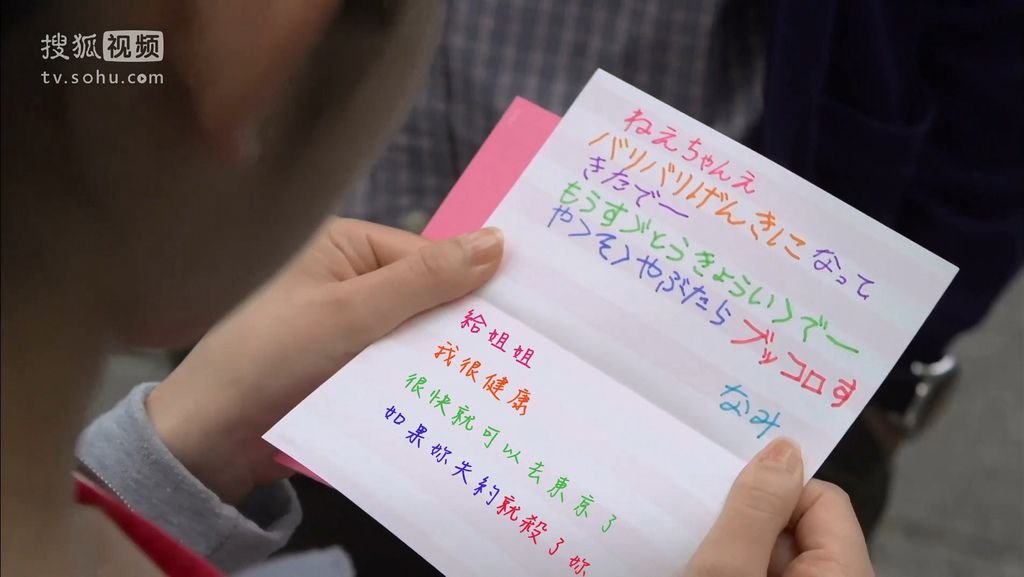 搜狐视频
tv.sohu.com
ねえちゃんえ
バリバリげんきになって
きたでー
もうすぐとうきょういくでー
やくそくやぶたらブッコロす
なみ
給姐姐
我很健康
很快就可以去東京了
如果妳失約就殺了妳